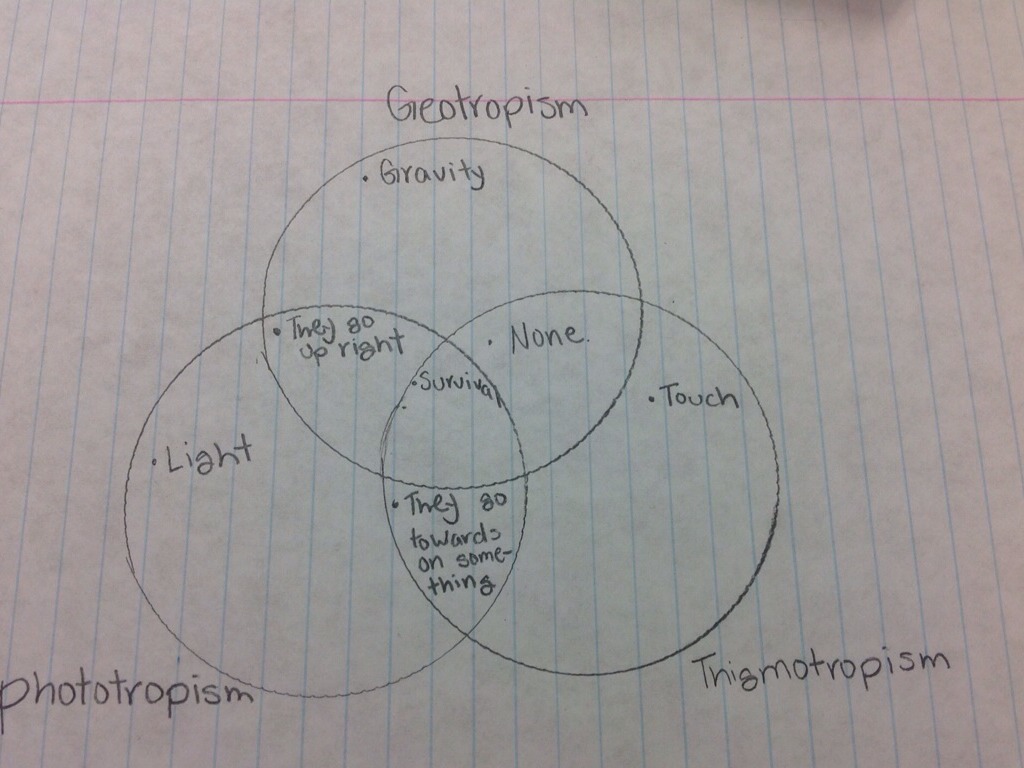 Geotropism
• Gravity
• They go
up right
• None.
• Survival
• Touch
• Light
• They go
towards
on some-
thing
phototropism
Thigmotropism